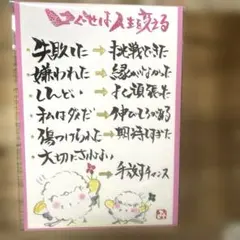 口ぐせは人生を変える
失敗した→挑戦できた
嫌われた→縁がなかった
しんどい→よく頑張った
私はダメだ→伸びしろがある
傷つけられた→期待しすぎた
大切にされない→手放すチャンス